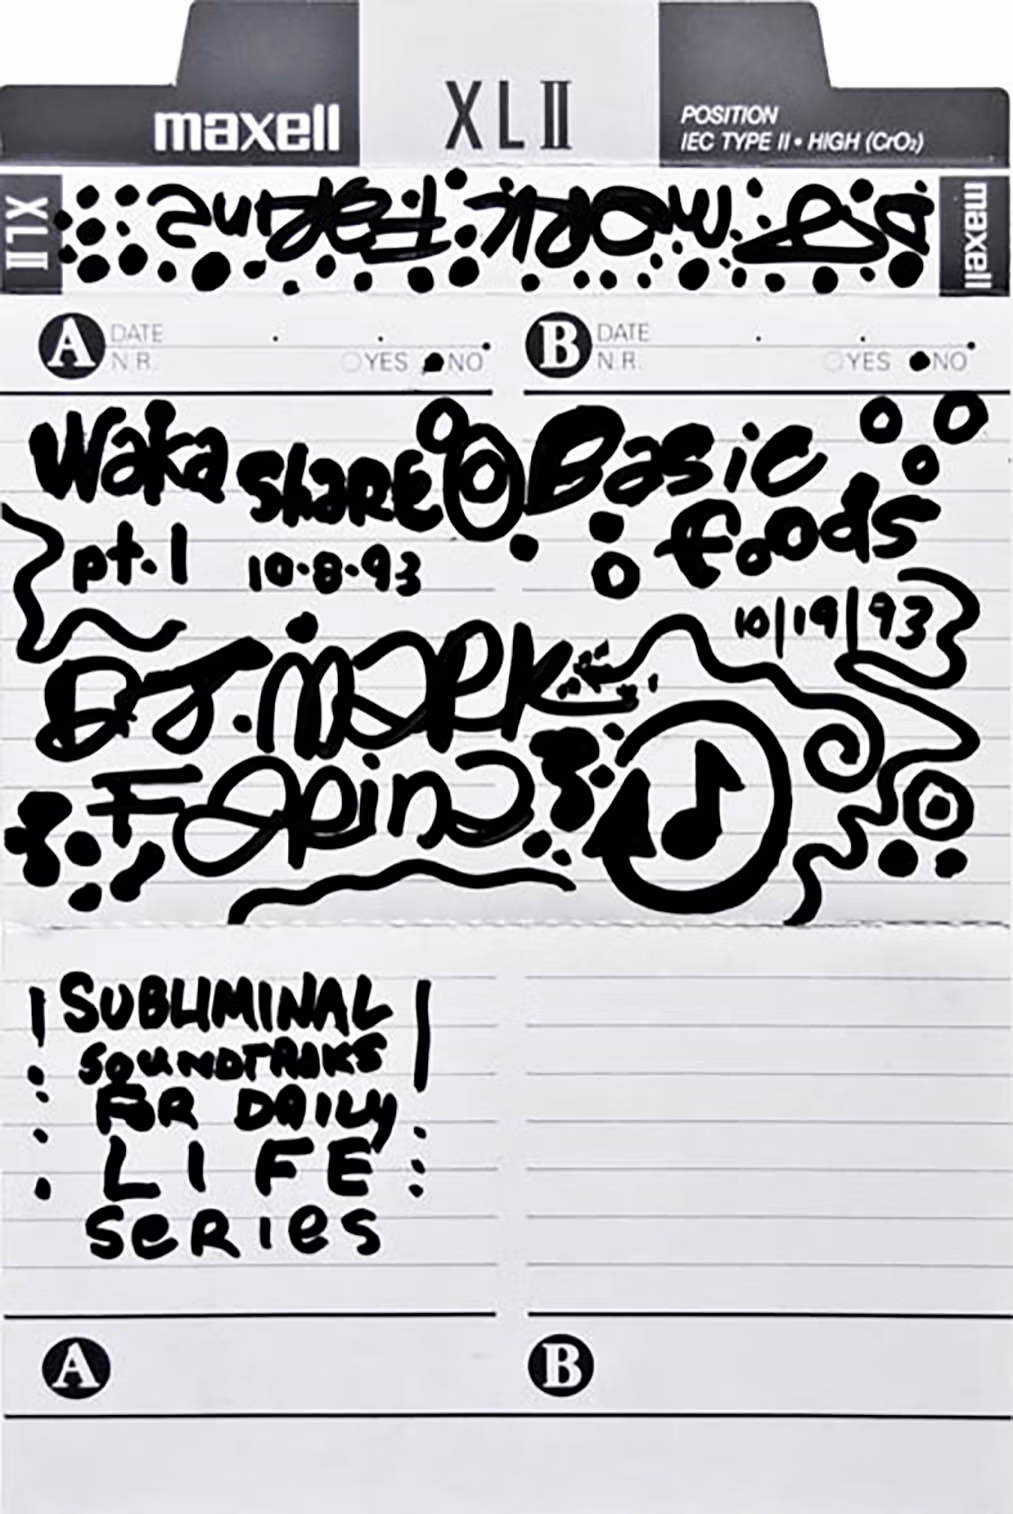 maxell XLII POSITION
IEC TYPE II • HIGH (CrO₂)
XLII DJ. MARK FARINA maxell
A DATE B DATE
N.R. YES NO N.R. YES NO
Waka Basic
SHARE foods
pt.1 10·8·93
10/19/93
DJ. MARK
FARINA
SUBLIMINAL
SOUNDTRAKS
FOR DAILY
LIFE
SERIES
A B